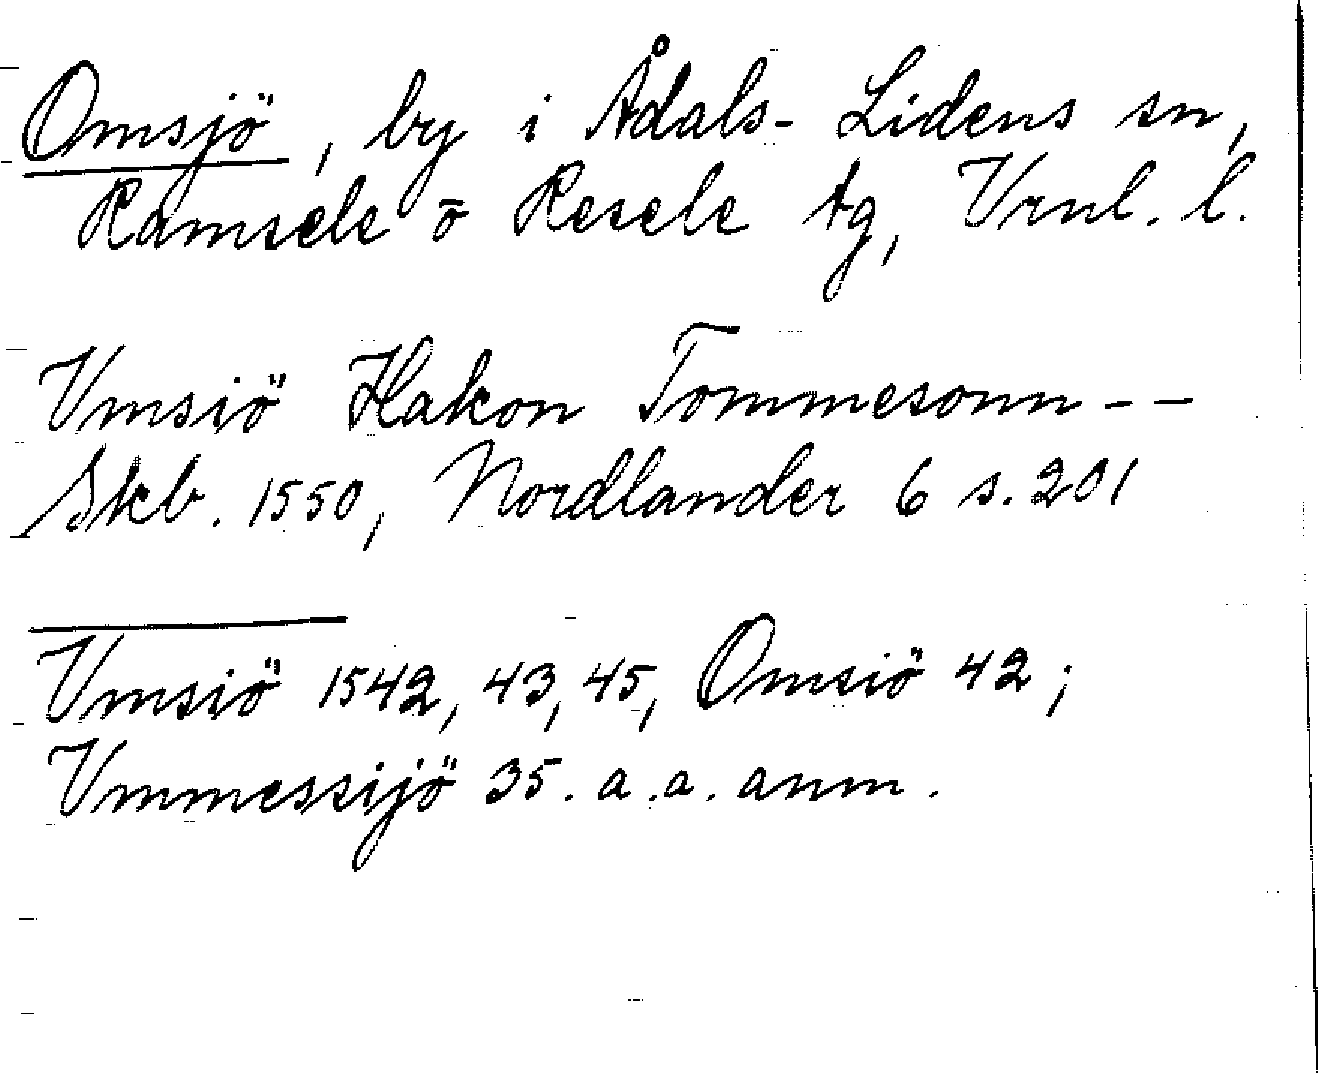 Omsjö, by i Ådals-Lidens sn,
Ramsele o Resele tg, Vrnl. l.
Vmsiö Hakon Tommesonn--
Skb. 1550, Nordlander 6 s. 201
Vmsiö 1542, 43, 45, Omsiö 42;
Vmmessijö 35. a.a. anm.